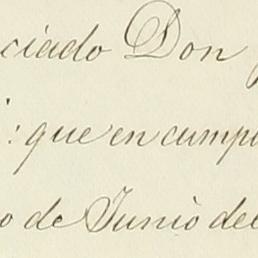 ciado Don
: que en cump
o de Junio del